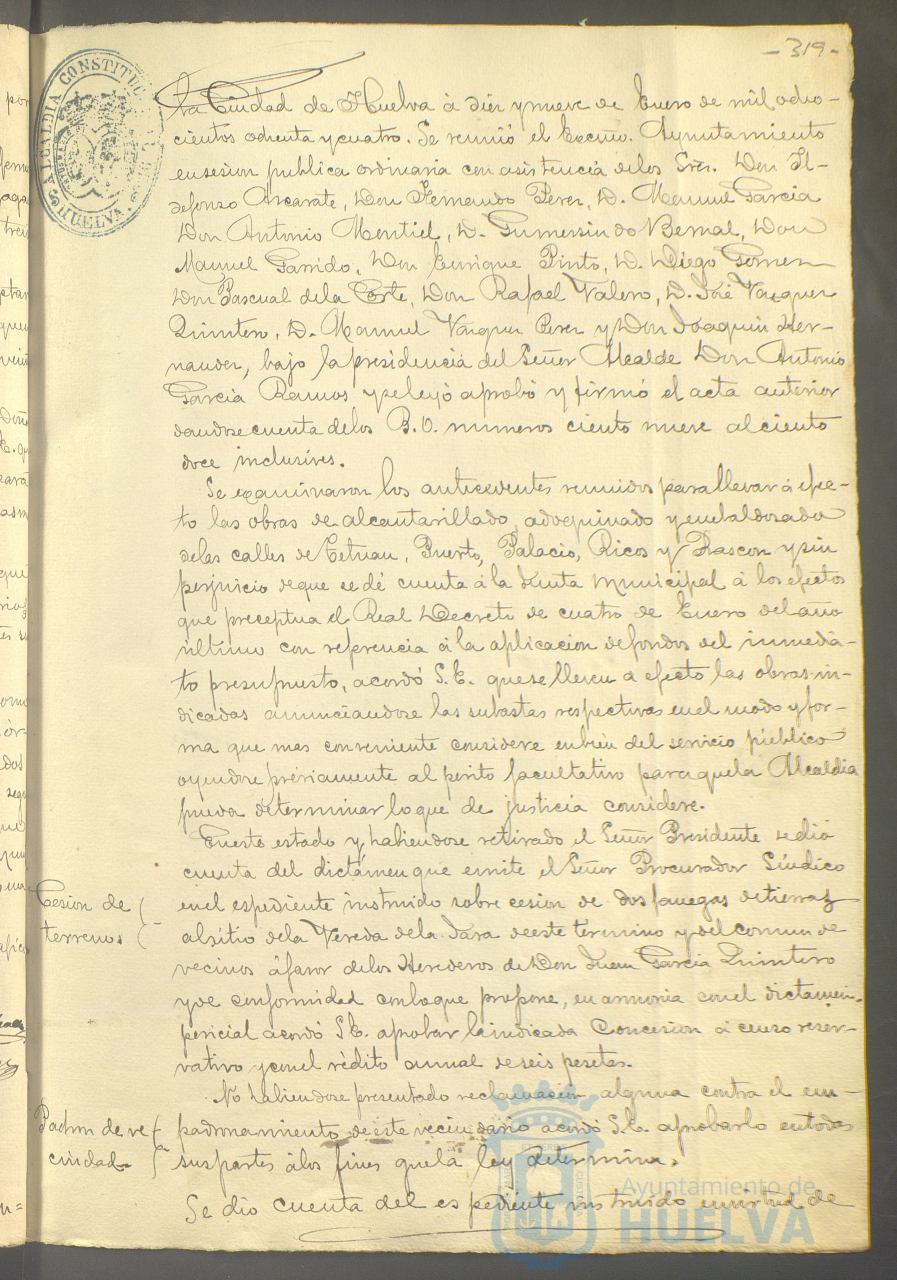 -319-
ALCALDIA CONSTITUC
HUELVA.
la Ciudad de Huelva á diez y nueve de Enero de mil ocho-
cientos ochenta y cuatro. Se reunió el Excmo. Ayuntamiento
en sesion publica ordinaria con asistencia de los Sres. Don Il-
defonso Ascarate, Don Fernando Perez, D. Manuel Garcia
Don Antonio Montiel, D. Gumersindo Bernal, Don
Manuel Garrido, Don Enrique Pinto, D. Diego Gomez
Don Pascual de la Corte, Don Rafael Valero, D. José Vazquez
Quintero, D. Manuel Vazquez Perez y Don Joaquin Her-
nandez, bajo la presidencia del Señor Alcalde Don Antonio
Garcia Ramos y se leyó aprobó y firmó el acta anterior
dandose cuenta de los B. O. numeros ciento nueve al ciento
doce inclusives.
Se examinaron los antecedentes reunidos para llevar á efec-
to las obras de alcantarillado, adoquinado y enbaldosado
de las calles de Tetuan, Puerto, Palacio, Ricos y Rascon y sin
perjuicio de que se dé cuenta á la Junta Municipal á los efectos
que preceptua el Real Decreto de cuatro de Enero del año
último con referencia á la aplicacion de fondos del inmedia-
to presupuesto, acordó S.E. que se lleven a efecto las obras in-
dicadas anunciandose las subastas respectivas en el modo y for-
ma que mas conveniente considere en bien del servicio público
oyendose préviamente al perito facultativo para que la Alcaldia
pueda determinar lo que de justicia considere.
En este estado y habiendose retirado el Señor Presidente se dió
cuenta del dictámen que emite el Señor Procurador Síndico
Cesion de
terrenos
en el espediente instruido sobre cesion de dos fanegas de tierras
al sitio de la Vereda de la de este termino y del comun de
vecinos á favor de los Herederos de Don Juan Garcia Quintero
y de conformidad con lo que propone, en armonia con el dictamen
pericial acordó S.E. aprobar la indicada Concesion á censo reser-
vativo y con el rédito annual de seis pesetas.
No habiendose presentado reclamacion alguna contra el em-
Padron de ve-
cindad.
padronamiento de este vecindario acordó S.E. aprobarlo en todas
sus partes á los fines que la ley determina.
Se dio cuenta del espediente instruido en virtud de
Ayuntamiento de
HUELVA